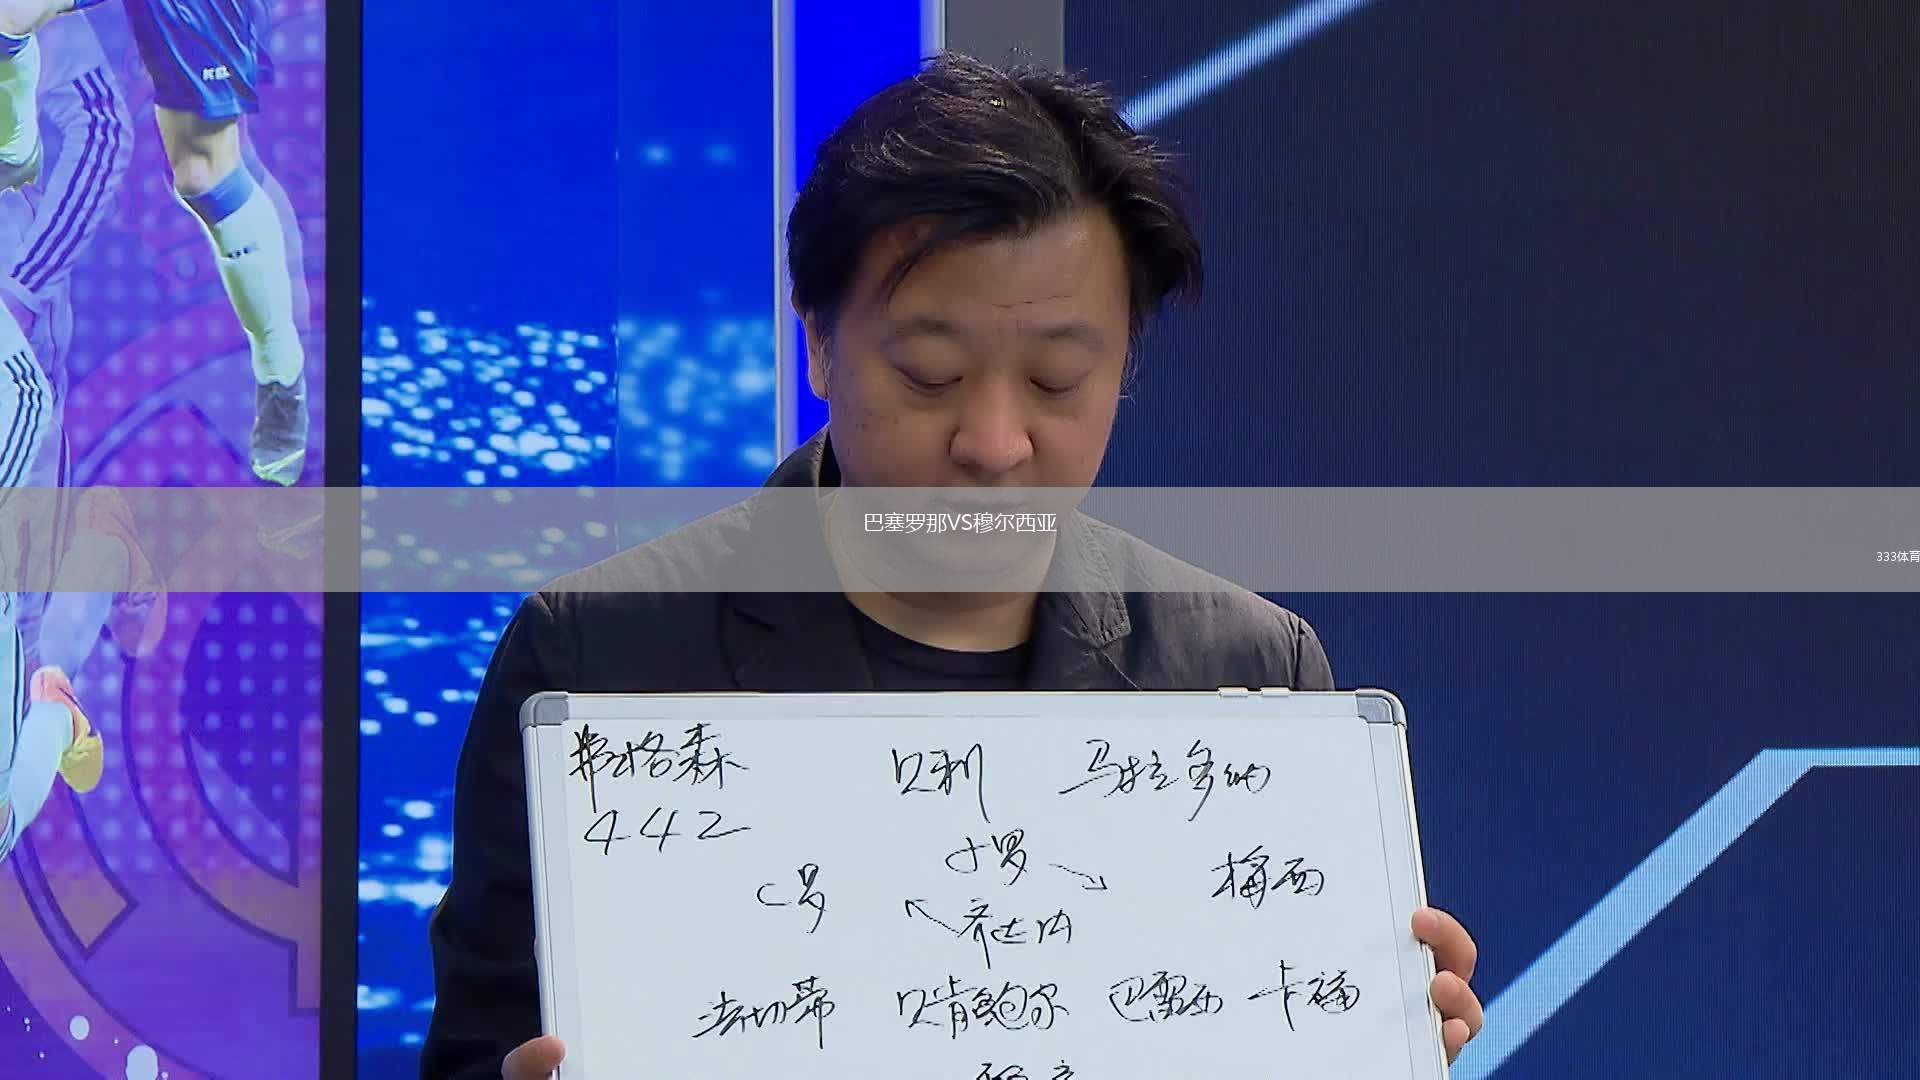 巴塞罗那VS穆尔西亚
333体育
弗格森 贝利 马拉多纳
442
小罗
C罗 梅西
齐达内
法切蒂 贝肯鲍尔 巴雷西 卡福